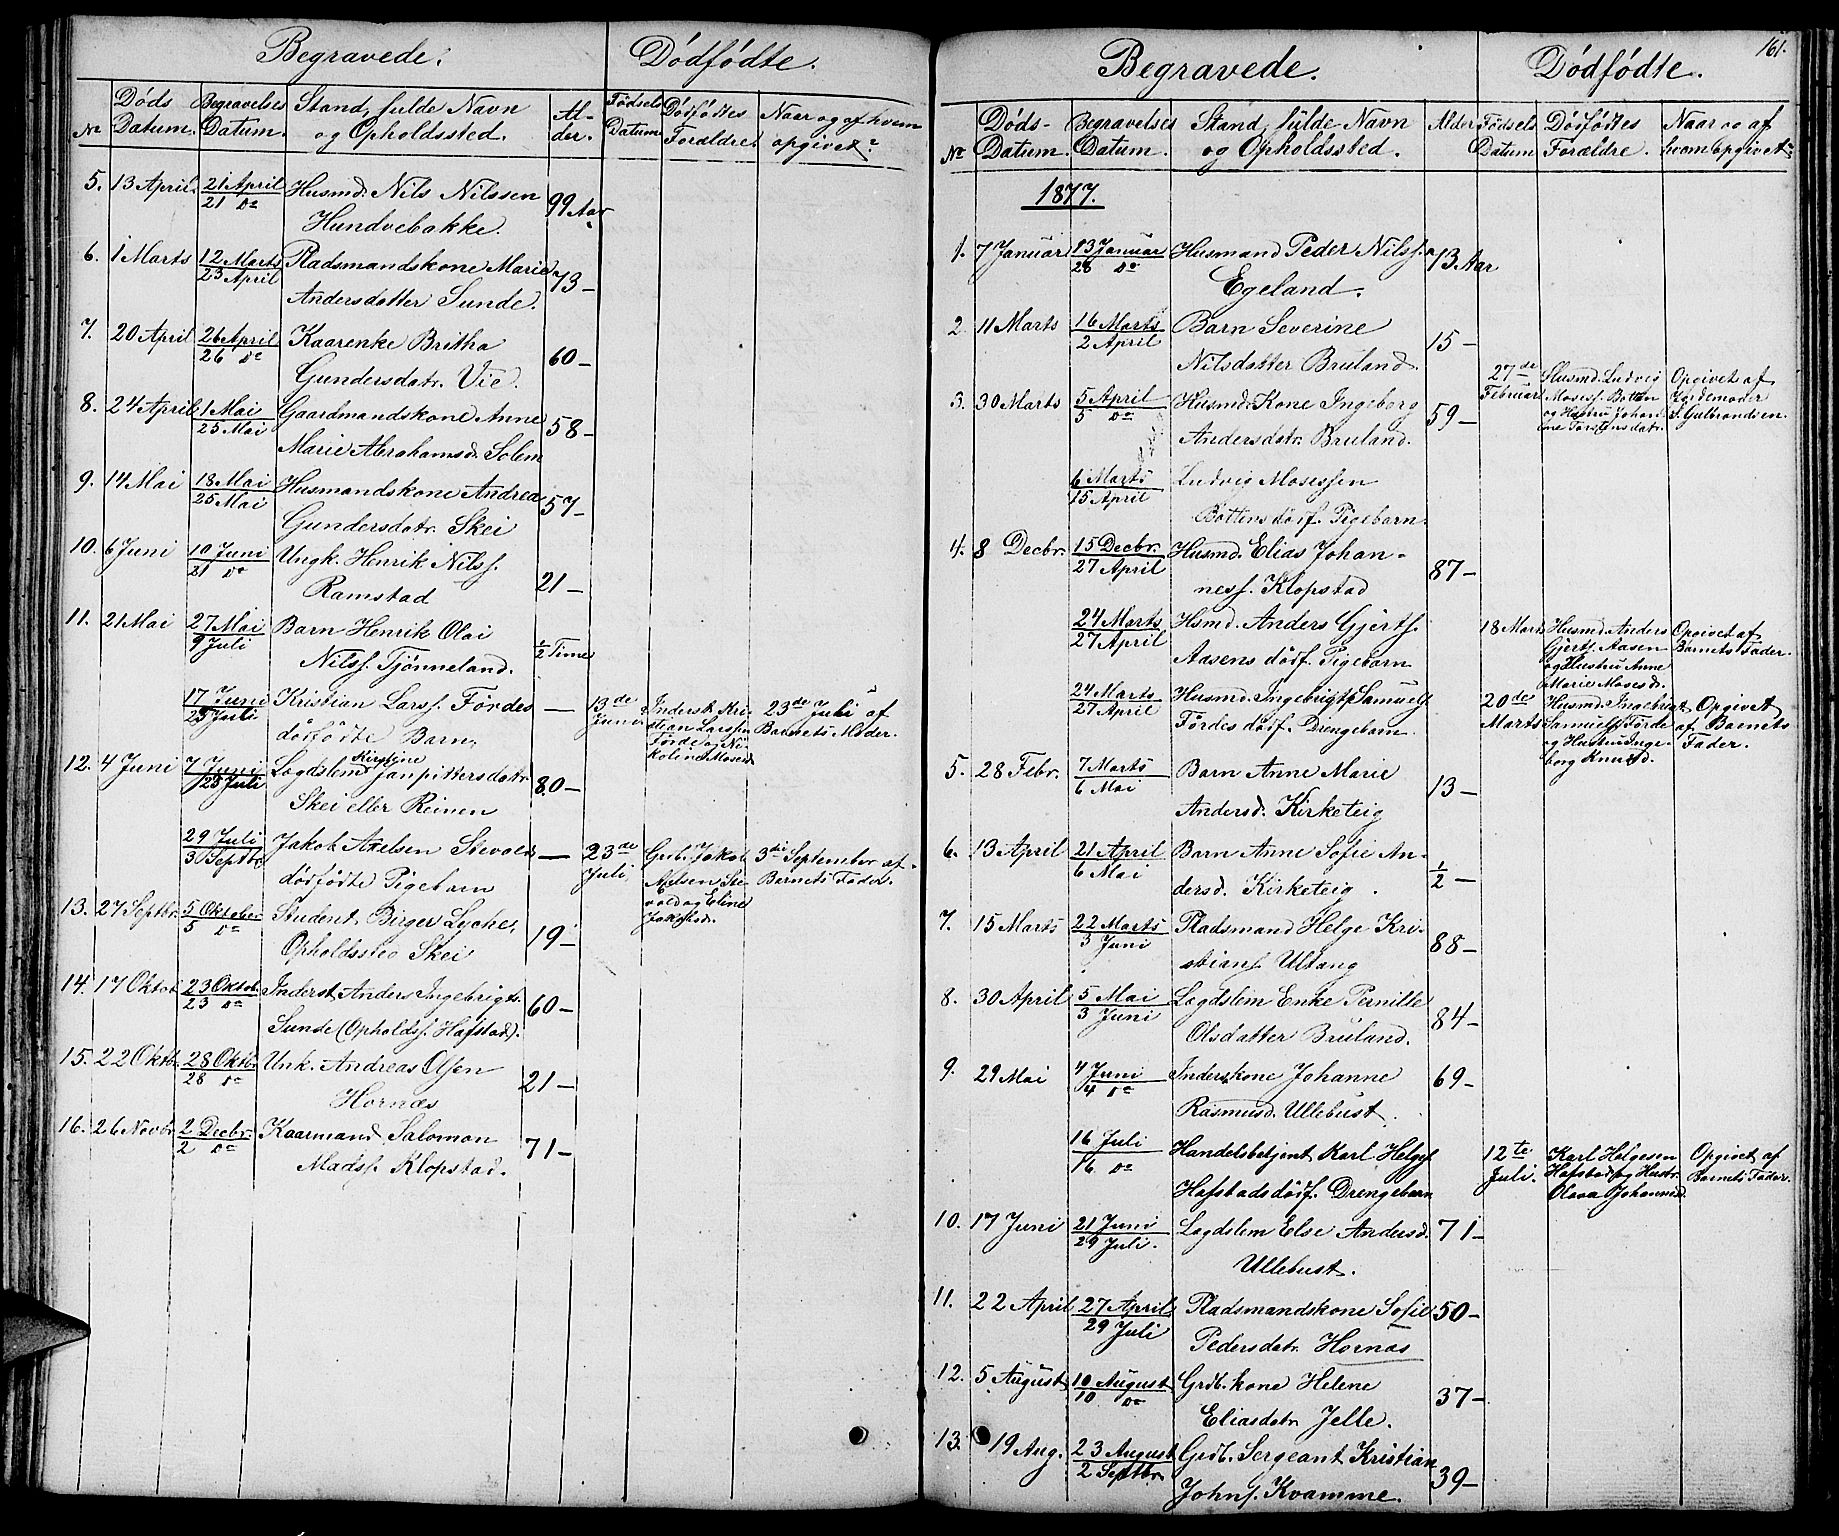 Begravede. Dödfödte.
No Döds Datum. Begravelses Datum. Stand, fulde Navn og Opholdssted. Al-der. Födsels Datum Dödfödtes Forældre. Naar og af hvem opgivet.
5. 13 April. 21 April Husmd. Nils Nilssen 99 Aar
21 Do Hundvebakke.
6. 1 Marts 12 Marts Pladsmandskone Marie 73 –
23 April Andersdatter Sunde.
7. 20 April 26 April Kaarenke Britha 60 –
26 Do Gundersdatr. Vie.
8. 24 April 1 Mai Gaardmandskone Anne 58 –
25 Mai Marie Abrahamsd. Solem
9. 14 Mai 18 Mai Husmandskone Andrea 57 –
25 Mai Gundersdatr. Skei
10. 6 Juni 10 Juni Ungk. Henrik Nilss. 21 –
21 Do Ramstad
11. 21 Mai 27 Mai Barn Henrik Olai ½ Time
9 Juli Nilss. Tjönneland.
17 Juni Kristian Larss. Fördes — 13de Juni
23 Juli dödfödte Barn.
Inderst Kri-
stian Larssen
Förde og Ni-
koline Mosesd.
23de Juli af
Barnets Moder.
12. 4 Juni 7 Juni Lægdslem Kirstine Janpittersdatr. 80 –
23 Juli Skei eller Reinen
29 Juli Jakob Axelsen Stevolds — 23de Juli,
3 Septbr. dödfödte Pigebarn
Grd. Jakob
Axelsen Ste-
vold og Eline
Jakobsd.
3die September af
Barnets Fader.
13. 27 Septbr. 5 Oktober Student Birger Lyche, 19 –
5 Do Opholdssted Skei
14. 17 Oktob. 23 Oktob. Inderst Anders Ingebrigts. 60 –
23 Do Sunde (Opholdss. Hafstad).
15. 22 Oktbr. 28 Oktbr. Unk. Andreas Olsen 21 –
28 Do Hornæs
16. 26 Novbr. 2 Decbr. Kaarmand Salomon 71 –
2 Do Madss. Klopstad.
161.
Begravede. Dödfödte.
No Döds-Datum. Begravelses Datum. Stand, fulde Navn og Opholdssted. Alder Födsels Datum Dödfödtes Forældre. Naar og af hvem opgivet.
1877.
1. 7 Januar 13 Januar Husmand Peder Nilss. 73 Aar
28 Do Egeland.
2. 11 Marts 16 Marts Barn Severine 15 –
2 April Nilsdatter Bruland.
3. 30 Marts 5 April Husmd. Kone Ingeborg 59 –
5 Do Andersdatr. Bruland.
27de
Februar
Husmd. Ludvig
Mosess. Botten
og Hustru Johan-
ne Torstensdatr.
Opgivet af
Jordemoder
S. Gulbrandsen.
6 Marts Ludvig Mosessen
15 April Bottens dödf. Pigebarn.
4. 8 Decbr. 15 Decbr. Husmd. Elias Johan- 87 –
27 April ness. Klopstad
24 Marts Hsmd. Anders Gjerts.
27 April Aasens dödf. Pigebarn
18 Marts
Husmd. Anders
Gjerts. Aasen
og Hustru Anne
Marie Mosesd.
Opgivet af
Barnets Fader.
24 Marts Husmd. Ingebrigt Samuels.
27 April Fördes dödf. Drengebarn.
20de
Marts
Husmd. Ingebrigt
Samuels. Förde
og Hustru Inge-
borg Knutsd.
Opgivet
af Barnets
Fader.
5. 28 Febr. 7 Marts Barn Anne Marie 13 –
6 Mai Andersd. Kirketeig
6. 13 April 21 April Barn Anne Sofie An- ½ –
6 Mai dersd. Kirketeig.
7. 15 Marts 22 Marts Pladsmand Helge Kri- 88 –
3 Juni stians. Ultang
8. 30 April 5 Mai Lægdslem Enke Pernille 84 –
3 Juni Olsdatter Bruland.
9. 29 Mai 4 Juni Inderskone Johanne 69 –
4 Do Rasmusd. Ullebust.
16 Juli Handelsbetjent Karl Helges.
16 Do Hafstads dödf. Drengebarn
12te
Juli.
Karl Helgesen
Hafstad og Hustr.
Olava Johannesd.
Opgivet af
Barnets Fader.
10. 17 Juni 21 Juni Lægdslem Else Andersd. 71 –
29 Juli. Ullebust.
11. 22 April 27 April Pladsmandskone Sofie 50 –
29 Juli Pedersdatr. Hornæs
12. 5 August 10 August Grdb. kone Helene 37 –
10 Do Eliasdatr. Jelle.
13. 19 Aug. 23 August Grdb. Sergeant Kristian 39 –
2 Septbr. Johns. Kvamme.